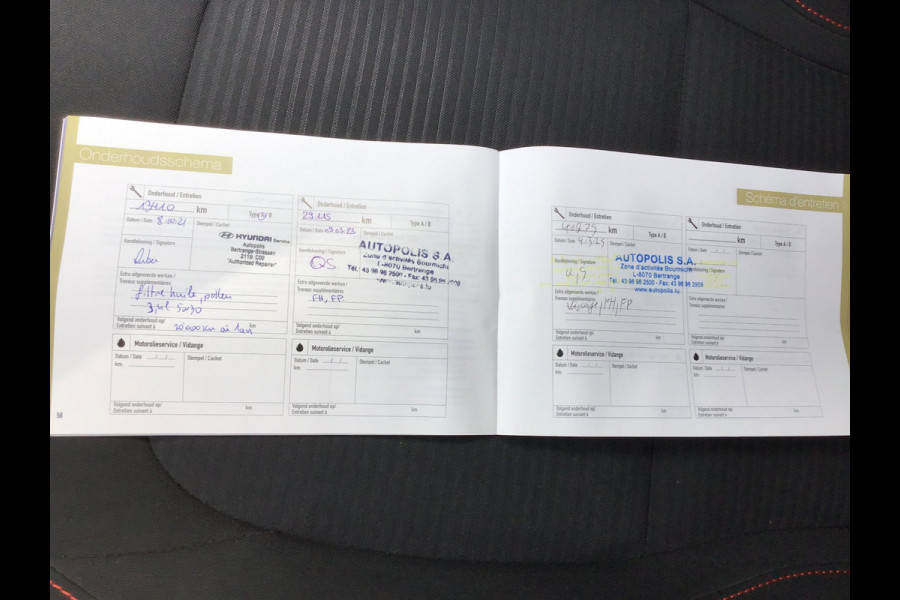 Onderhoudsschema
Onderhoud / Entretien
13410 km
Type A / B
Datum / Date 8.10.21
Stempel / Cachet
HYUNDAI Service
Autopolis
Bertrange-Strassen
2119 C02
"Authorised Repairer"
Handtekening / Signature
Extra uitgevoerde werken /
Travaux supplémentaires
filtre huile, pollen
3,4l 5w30
Volgend onderhoud op/
Entretien suivant à
20000 km ou 1an
km
Motorolieservice / Vidange
Datum / Date __/__/__
Stempel / Cachet
km:
Volgend onderhoud op/
Entretien suivant à
km
58
Onderhoud / Entretien
29.115 km
Type A / B
Datum / Date 09.03.23
Stempel / Cachet
AUTOPOLIS S.A.
Zone d'activités Bourmicht
L-8070 Bertrange
Tél.: 43 96 96 2500 - Fax: 43 96 96 2909
www.autopolis.lu
Handtekening / Signature
QS
Extra uitgevoerde werken /
Travaux supplémentaires
FH, FP
Volgend onderhoud op/
Entretien suivant à
km
Motorolieservice / Vidange
Datum / Date __/__/__
Stempel / Cachet
km:
Volgend onderhoud op/
Entretien suivant à
km
Schéma d'entretien
Onderhoud / Entretien
km
Type A / B
Datum / Date 4.3.25
Stempel / Cachet
AUTOPOLIS S.A.
Zone d'activités Bourmicht
L-8070 Bertrange
Tél.: 43 96 96 2500 - Fax: 43 96 96 2909
www.autopolis.lu
Handtekening / Signature
Extra uitgevoerde werken /
Travaux supplémentaires
Vidange, FH, FP
Volgend onderhoud op/
Entretien suivant à
km
Motorolieservice / Vidange
Datum / Date __/__/__
Stempel / Cachet
km:
Volgend onderhoud op/
Entretien suivant à
km
Onderhoud / Entretien
km
Type A / B
Datum / Date __/__/__
Stempel / Cachet
Handtekening / Signature
Extra uitgevoerde werken /
Travaux supplémentaires
Volgend onderhoud op/
Entretien suivant à
km
Motorolieservice / Vidange
Datum / Date __/__/__
Stempel / Cachet
km:
Volgend onderhoud op/
Entretien suivant à
km